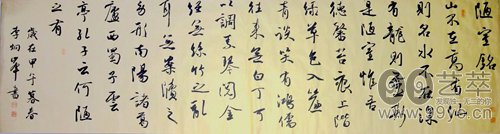 陋室銘
山不在高有仙
則名水不在深
有龍則靈斯
是陋室惟吾
德馨苔痕上階
綠草色入簾
青談笑有鴻儒
往來無白丁可
以調素琴閱金
經無絲竹之亂
耳無案牘之
勞形南陽諸葛
廬西蜀子雲
亭孔子云何陋
之有
歲在甲午暮春
李炳書